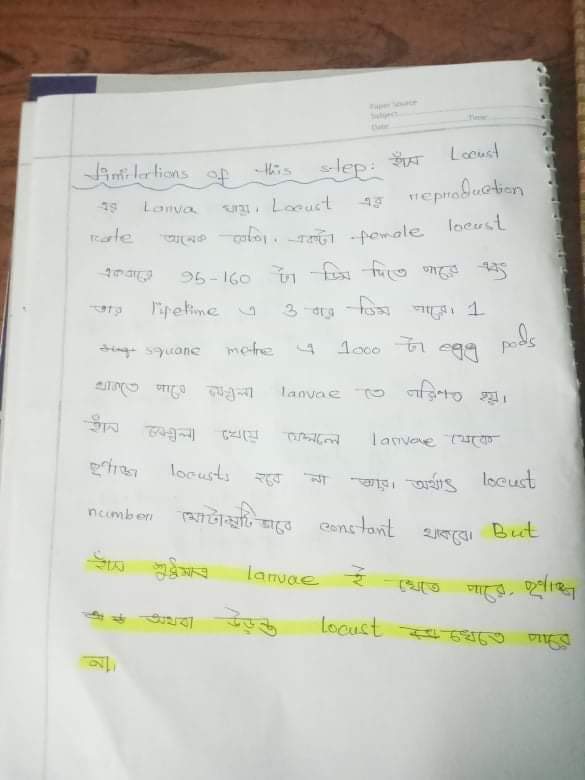 Paper Source
Subject
Time
Date
Limitations of this step: হাঁস Locust
এর Larva খায়। Locust এর reproduction
rate অনেক বেশি। একটা female locust
একবারে 95-160 টা ডিম দিতে পারে এবং
তার lifetime এ 3 বার ডিম পারে। 1
square metre এ 1000 টা egg pods
থাকতে পারে যেগুলা larvae তে পরিণত হয়।
হাঁস যেগুলা খেয়ে ফেললে larvae থেকে
পূর্ণাঙ্গ locusts হবে না আর। অর্থাৎ locust
number মোটামুটিভাবে constant থাকবে। But
হাঁস শুধুমাত্র larvae ই খেতে পারে, পূর্ণাঙ্গ
অথবা উড়ন্ত locust খেতে পারে
না।